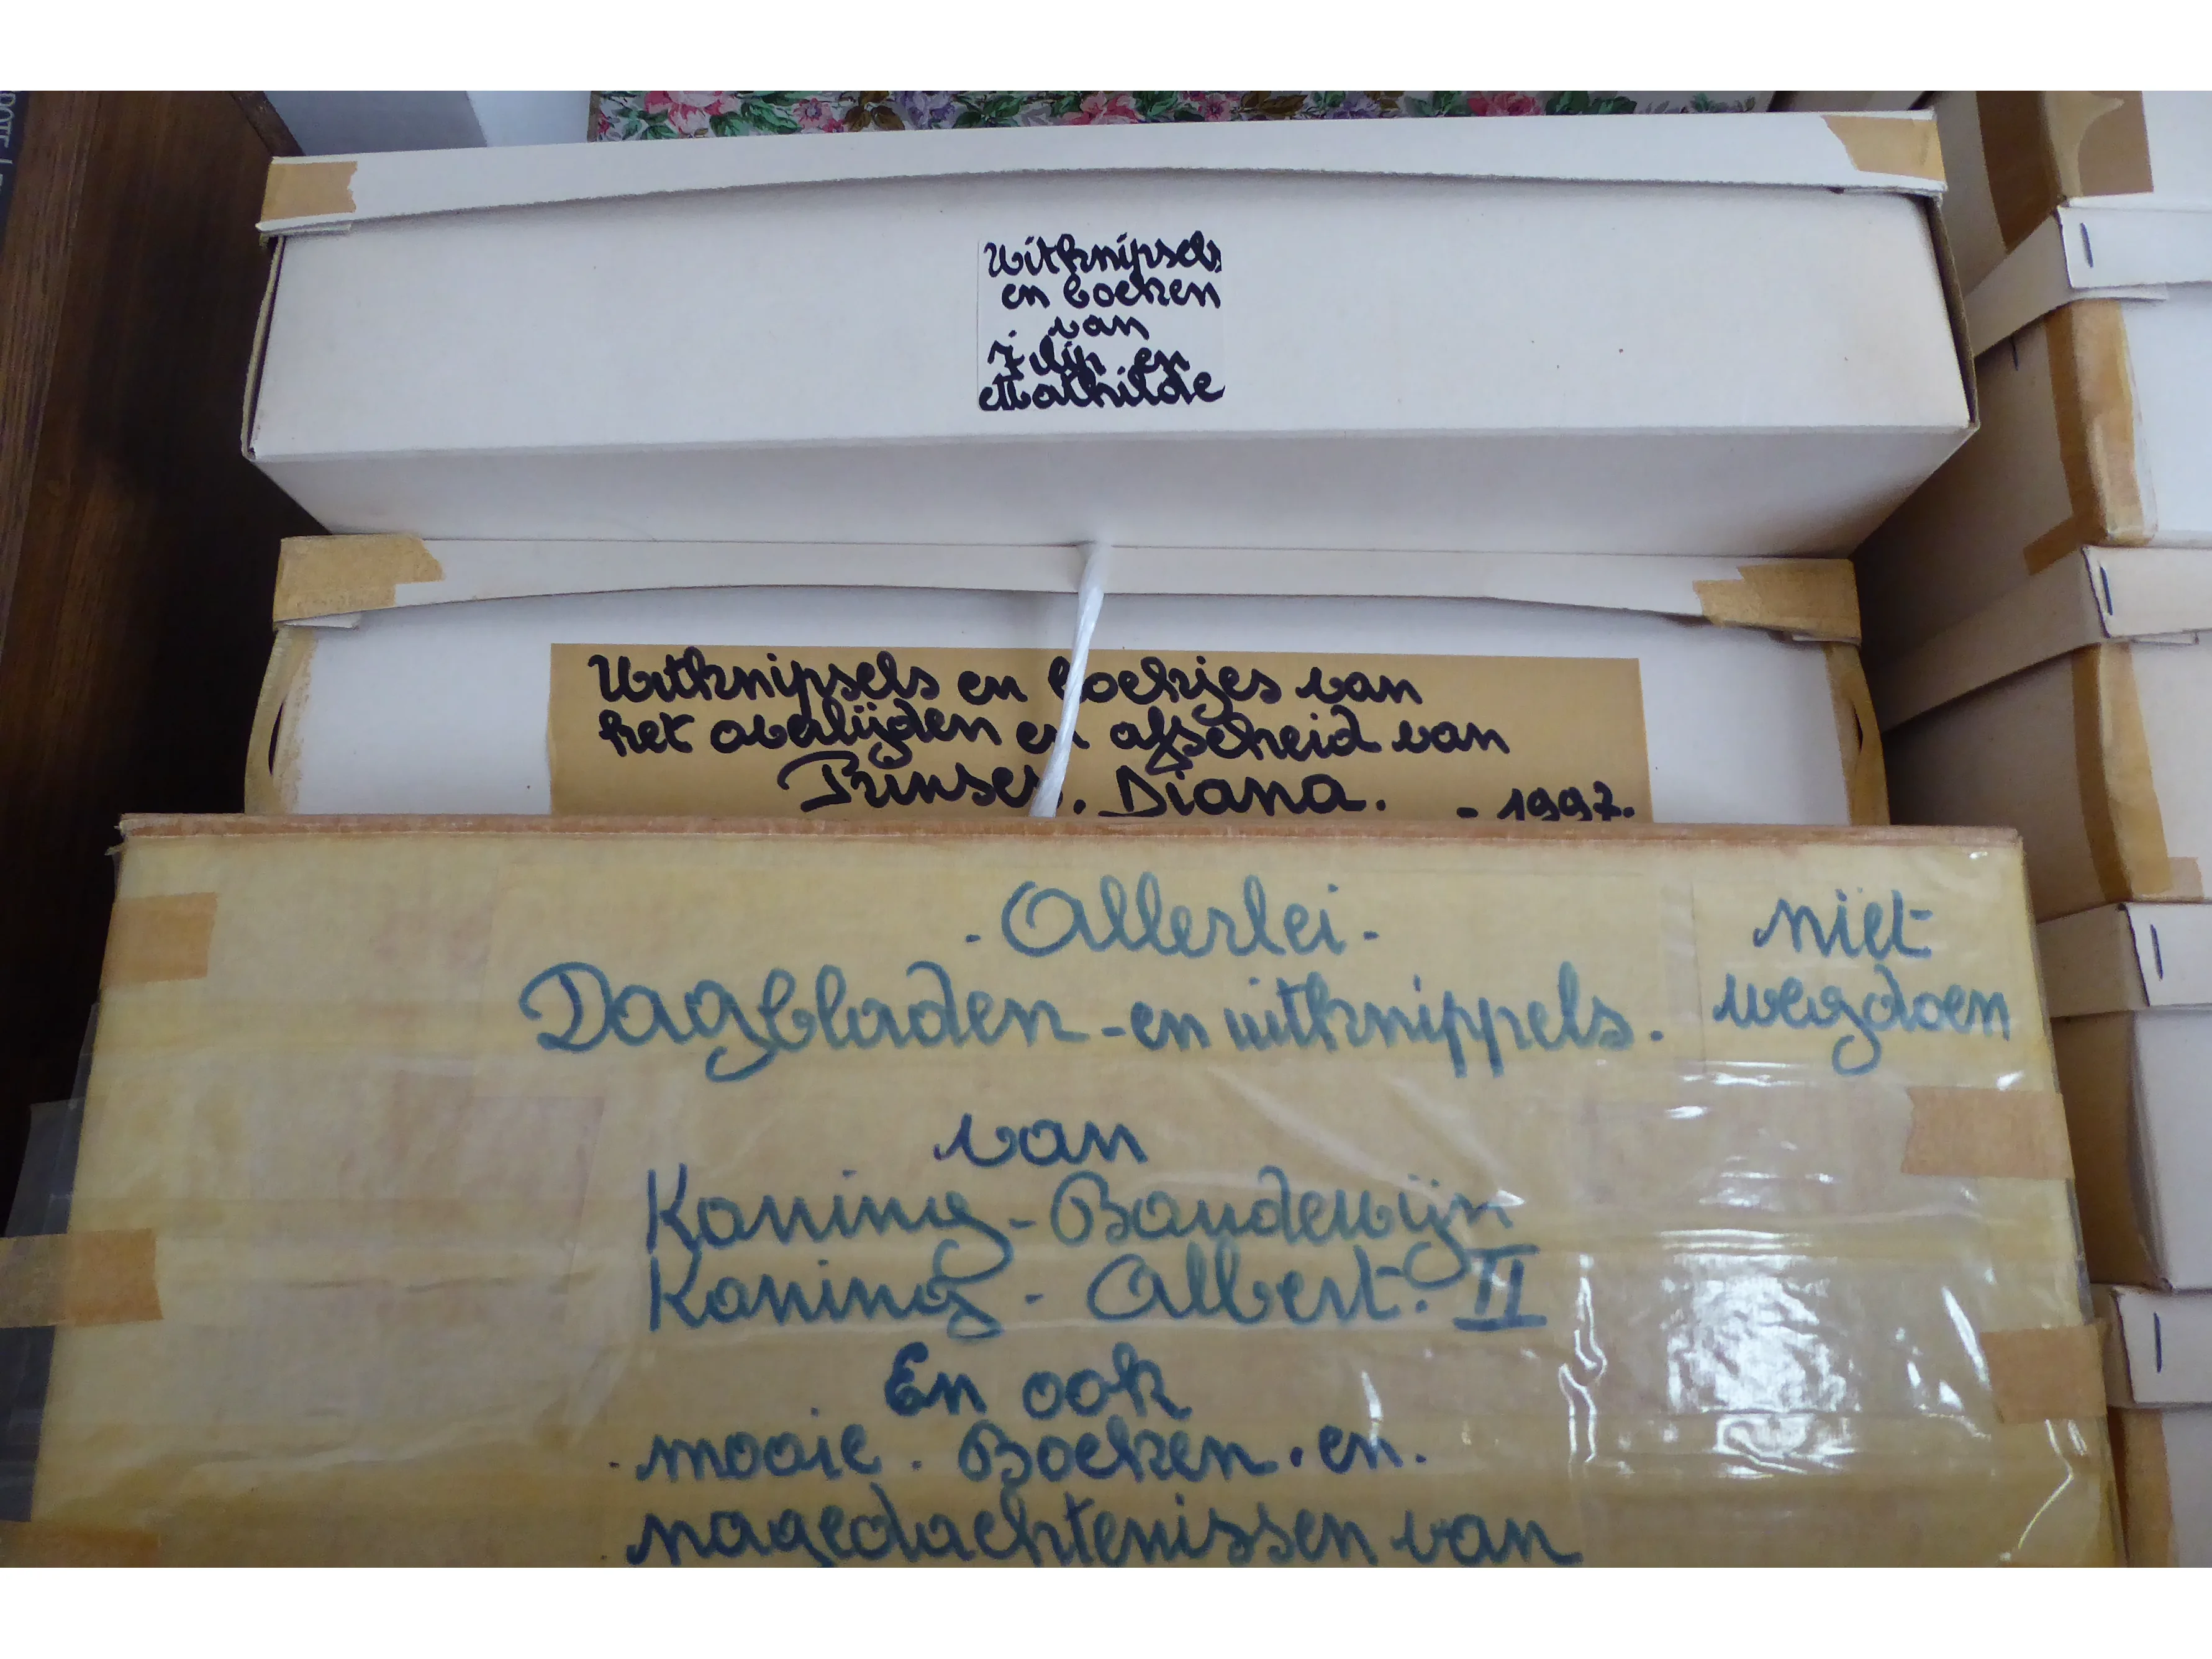 Uitknipsels
en boeken
van
Filip en
Mathilde
Uitknipsels en boekjes van
het overlijden en afscheid van
Prinses. Diana. - 1997.
- Allerlei -
Dagbladen - en uitknippels.
niet
wegdoen
van
Koning - Boudewijn
Koning - Albert. II
En ook
. mooie . Boeken . en .
. nagedachtenissen van